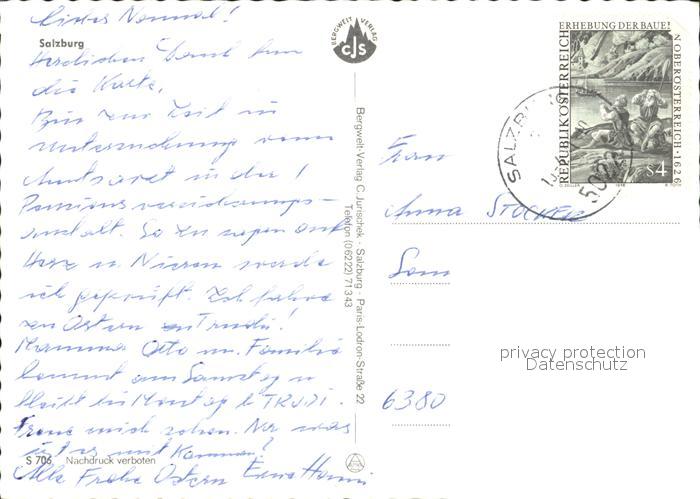 Salzburg
Herzlichen Dank für
die Karte.
Bin zur Zeit in
Untersuchung vom
Amtsarzt in der
Pensionsversicherungs-
anstalt. So zu sagen auf
Herz u. Nieren werde
ich geprüft. Ich fahre
zu Ostern zu Trudi!
Mamma Otto u. Familie
kommt am Samstag u
bleibt bis Montag b. TRUDI.
Freue mich schon. Nur was
ist es mit
Alles Frohe Ostern
S 706 Nachdruck verboten
BERGWELT VERLAG
CJS
Bergwelt-Verlag C. Jurischek - Salzburg - Paris-Lodron-Straße 22
Telefon (06222) 71343
ERHEBUNG DER BAUERN OBERÖSTERREICH·1626
REPUBLIK ÖSTERREICH
S4
SALZBURG
5022
Frau
Anna STOCKER
6380
privacy protection
Datenschutz